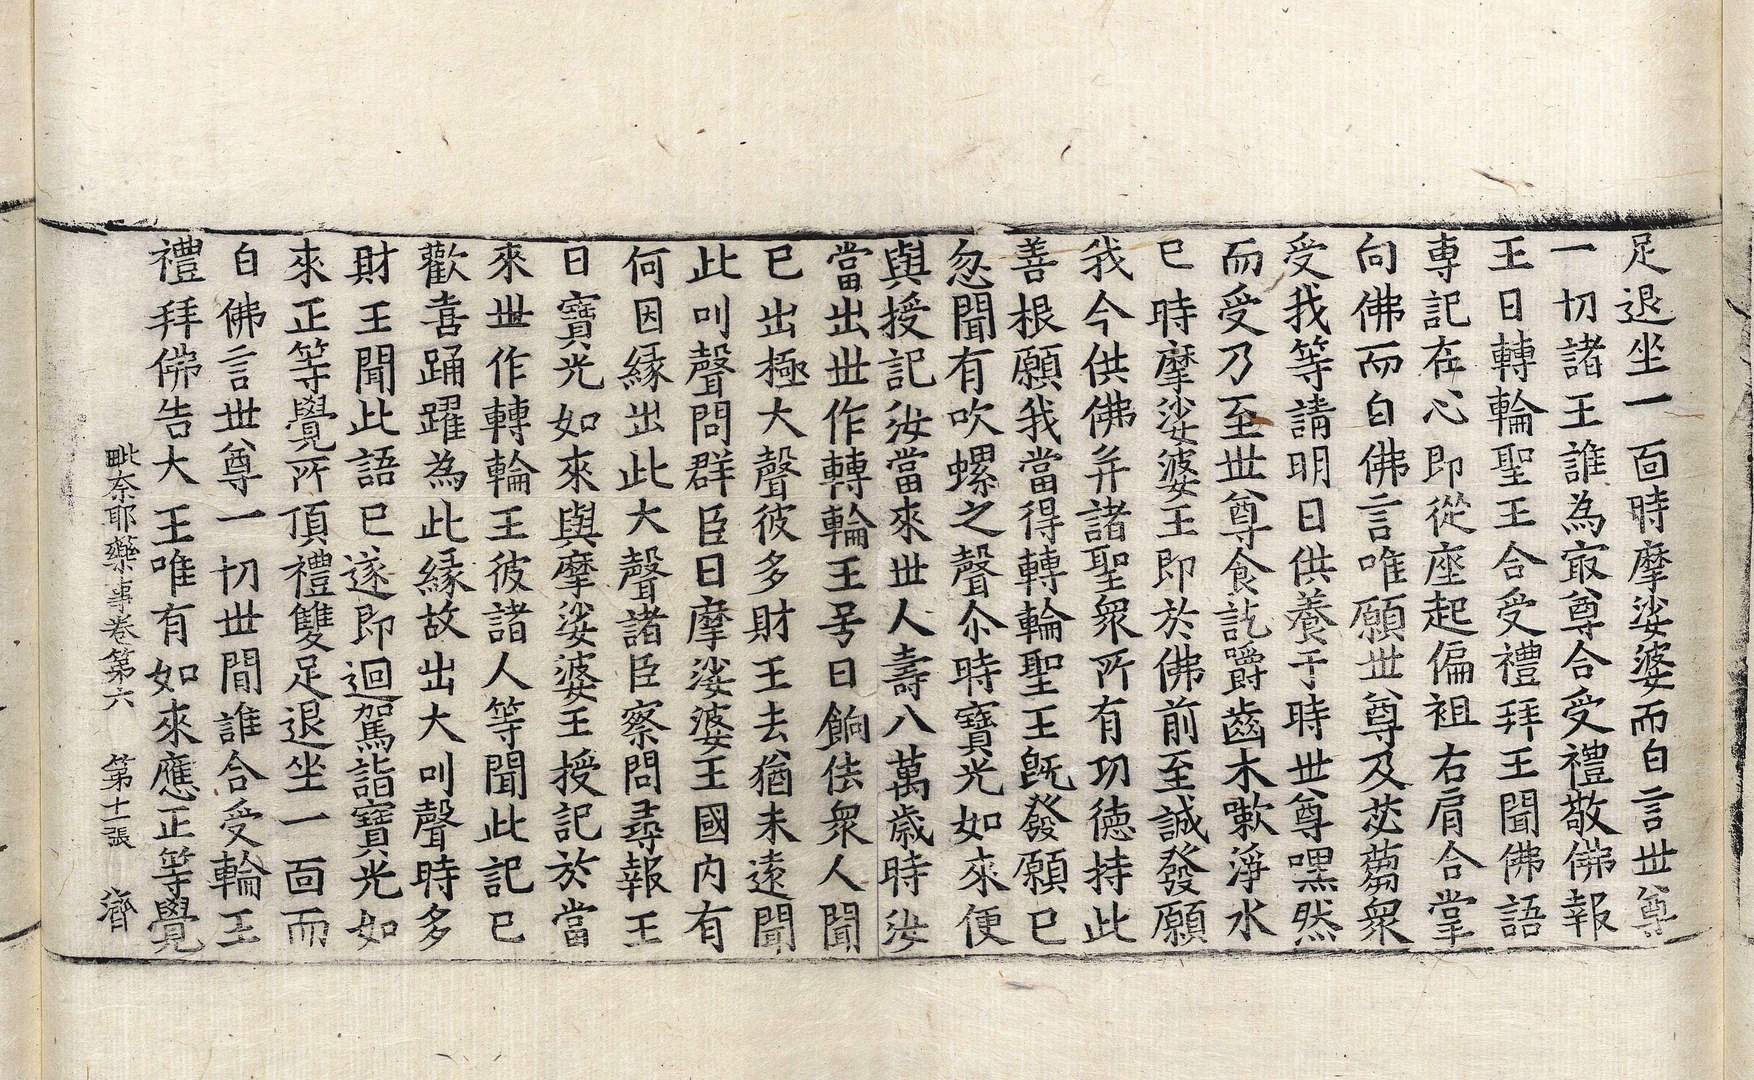 足退坐一面時摩娑婆而白言世尊
一切諸王誰為㝡尊合受禮敬佛報
王曰轉輪聖王合受禮拜王聞佛語
專記在心即從座起偏袒右肩合掌
向佛而白佛言唯願世尊及苾蒭衆
受我等請明日供養于時世尊嘿然
而受乃至世尊食訖嚼齒木嗽淨水
已時摩娑婆王即於佛前至誠發願
我今供佛并諸聖衆所有功德持此
善根願我當得轉輪聖王旣發願已
忽聞有吹螺之聲尒時寶光如來便
與授記汝當來世人壽八萬歲時汝
當出世作轉輪王号曰餉佉衆人聞
已出極大聲彼多財王去猶未遠聞
此叫聲問群臣曰摩娑婆王國內有
何因緣出此大聲諸臣察問尋報王
曰寶光如來與摩娑婆王授記於當
來世作轉輪王彼諸人等聞此記已
歡喜踊躍為此緣故出大叫聲時多
財王聞此語已遂即迴駕詣寶光如
來正等覺所頂禮雙足退坐一面而
白佛言世尊一切世間誰合受輪王
禮拜佛告大王唯有如來應正等覺
毗奈耶藥事卷第六 第十一張 濟